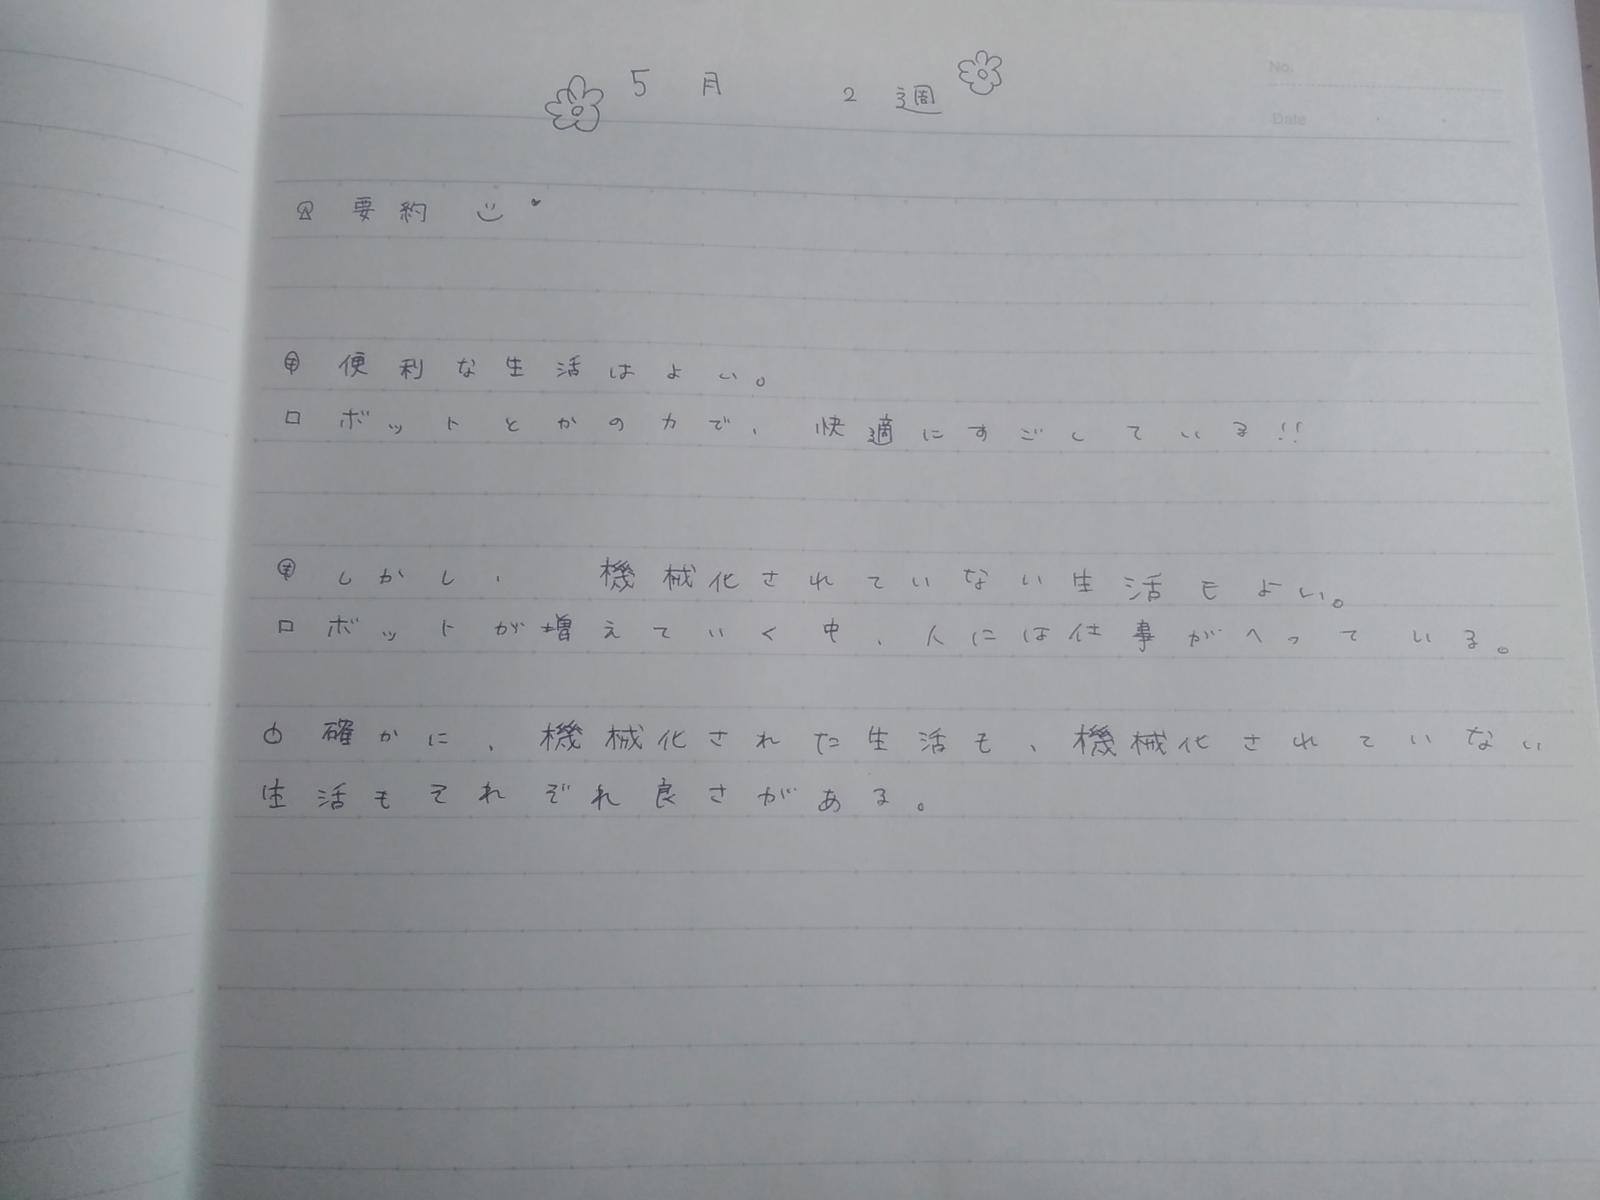 No.
5月 2週
Date
要約
㊉ 便利な生活はよい。
ロボットとかの力で、快適にすごしている!!
㊉ しかし、機械化されていない生活もよい。
ロボットが増えていく中、人には仕事がへっている。
確かに、機械化された生活も、機械化されていない
生活もそれぞれ良さがある。